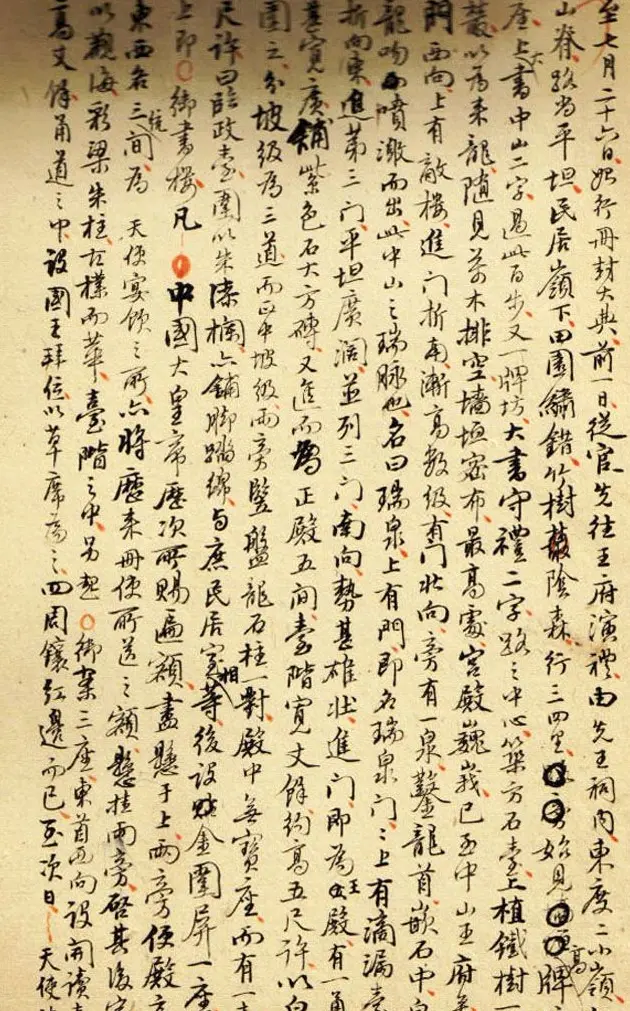 至七月二十六日、始行冊封大典、前一日、從官先往王府演禮、由先王祠内東度二小嶺、
山脊路尚平坦、民居嶺下、田園繡錯、竹樹叢陰森、行三四里、始見牌
座、上大書中山二字、過此百步、又一牌坊、大書守禮二字、路之中心、築方石臺、上植鐵樹一
叢、以爲來龍、隨見草木排空、墻垣密布、最高處、宮殿巍峩、已至中山王府矣
門西向、上有敵樓、進門折南、漸高數級、有門北向、旁有一泉、鑿龍首嵌石中、自
龍吻噴激而出、此中山之瑞脉也、名曰瑞泉、上有門、即名瑞泉門、門上有滴漏臺
折向東、進第三門、平坦廣濶、並列三門、南向、勢甚雄壯、進門即爲王殿、有一甬
甚寬廣、鋪紫色石大方磚、又進而爲正殿五間、臺階寬丈餘、約高五尺許、以白
圍之、分坡級爲三道、而正中坡級兩旁、竪盤龍石柱一對、殿中無寶座、而有一
尺許、曰臨政臺、圍以朱漆欄、亦鋪脚踏綿、與庶民居室相等、後設貼金圍屏一座
上即〇御書樓、凡〇中國大皇帝歷次所賜匾額、盡懸于上、兩旁便殿
東西各三間、爲天使宴飲之所、亦將歷來冊使所送之額、懸挂兩旁、啓其後
以觀海、彩梁朱柱、古樸而華、臺階之中、另起〇御案三座、東首西向、設開讀
高丈餘、甬道之中、設國王拜位、以草席爲之、四周鑲紅邊而已、至次日、天使